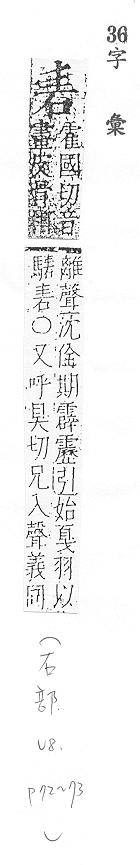 36
字彙
砉
霍國切音
畫皮骨相
離聲沈佺期霹靂引始戛羽以
騞砉〇又呼狊切兄入聲義同
(石部. U8. P72~73)